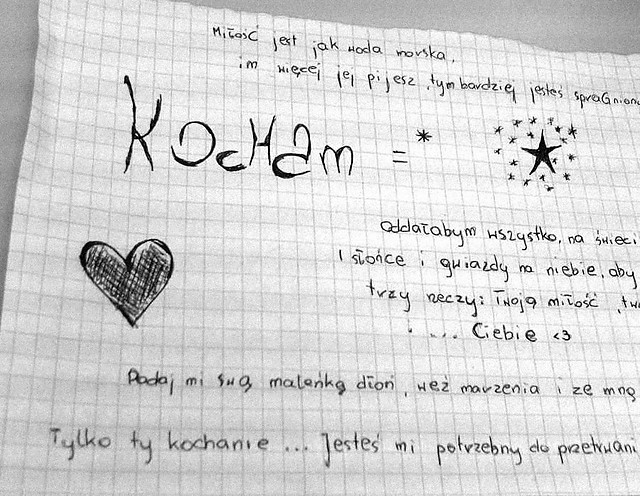 Miłość jest jak woda morska,
im więcej jej pijesz, tym bardziej jesteś spraGnion
KOCHam = *
oddałabym wszystko, na świeci
I słońce i gwiazdy na niebie, aby
trzy rzeczy: Twoją miłość, tw
. ... Ciebie <3
Podaj mi swą maleńką dłoń, weź marzenia i ze mną
Tylko ty kochanie ... Jesteś mi potrzebny do przetrwani